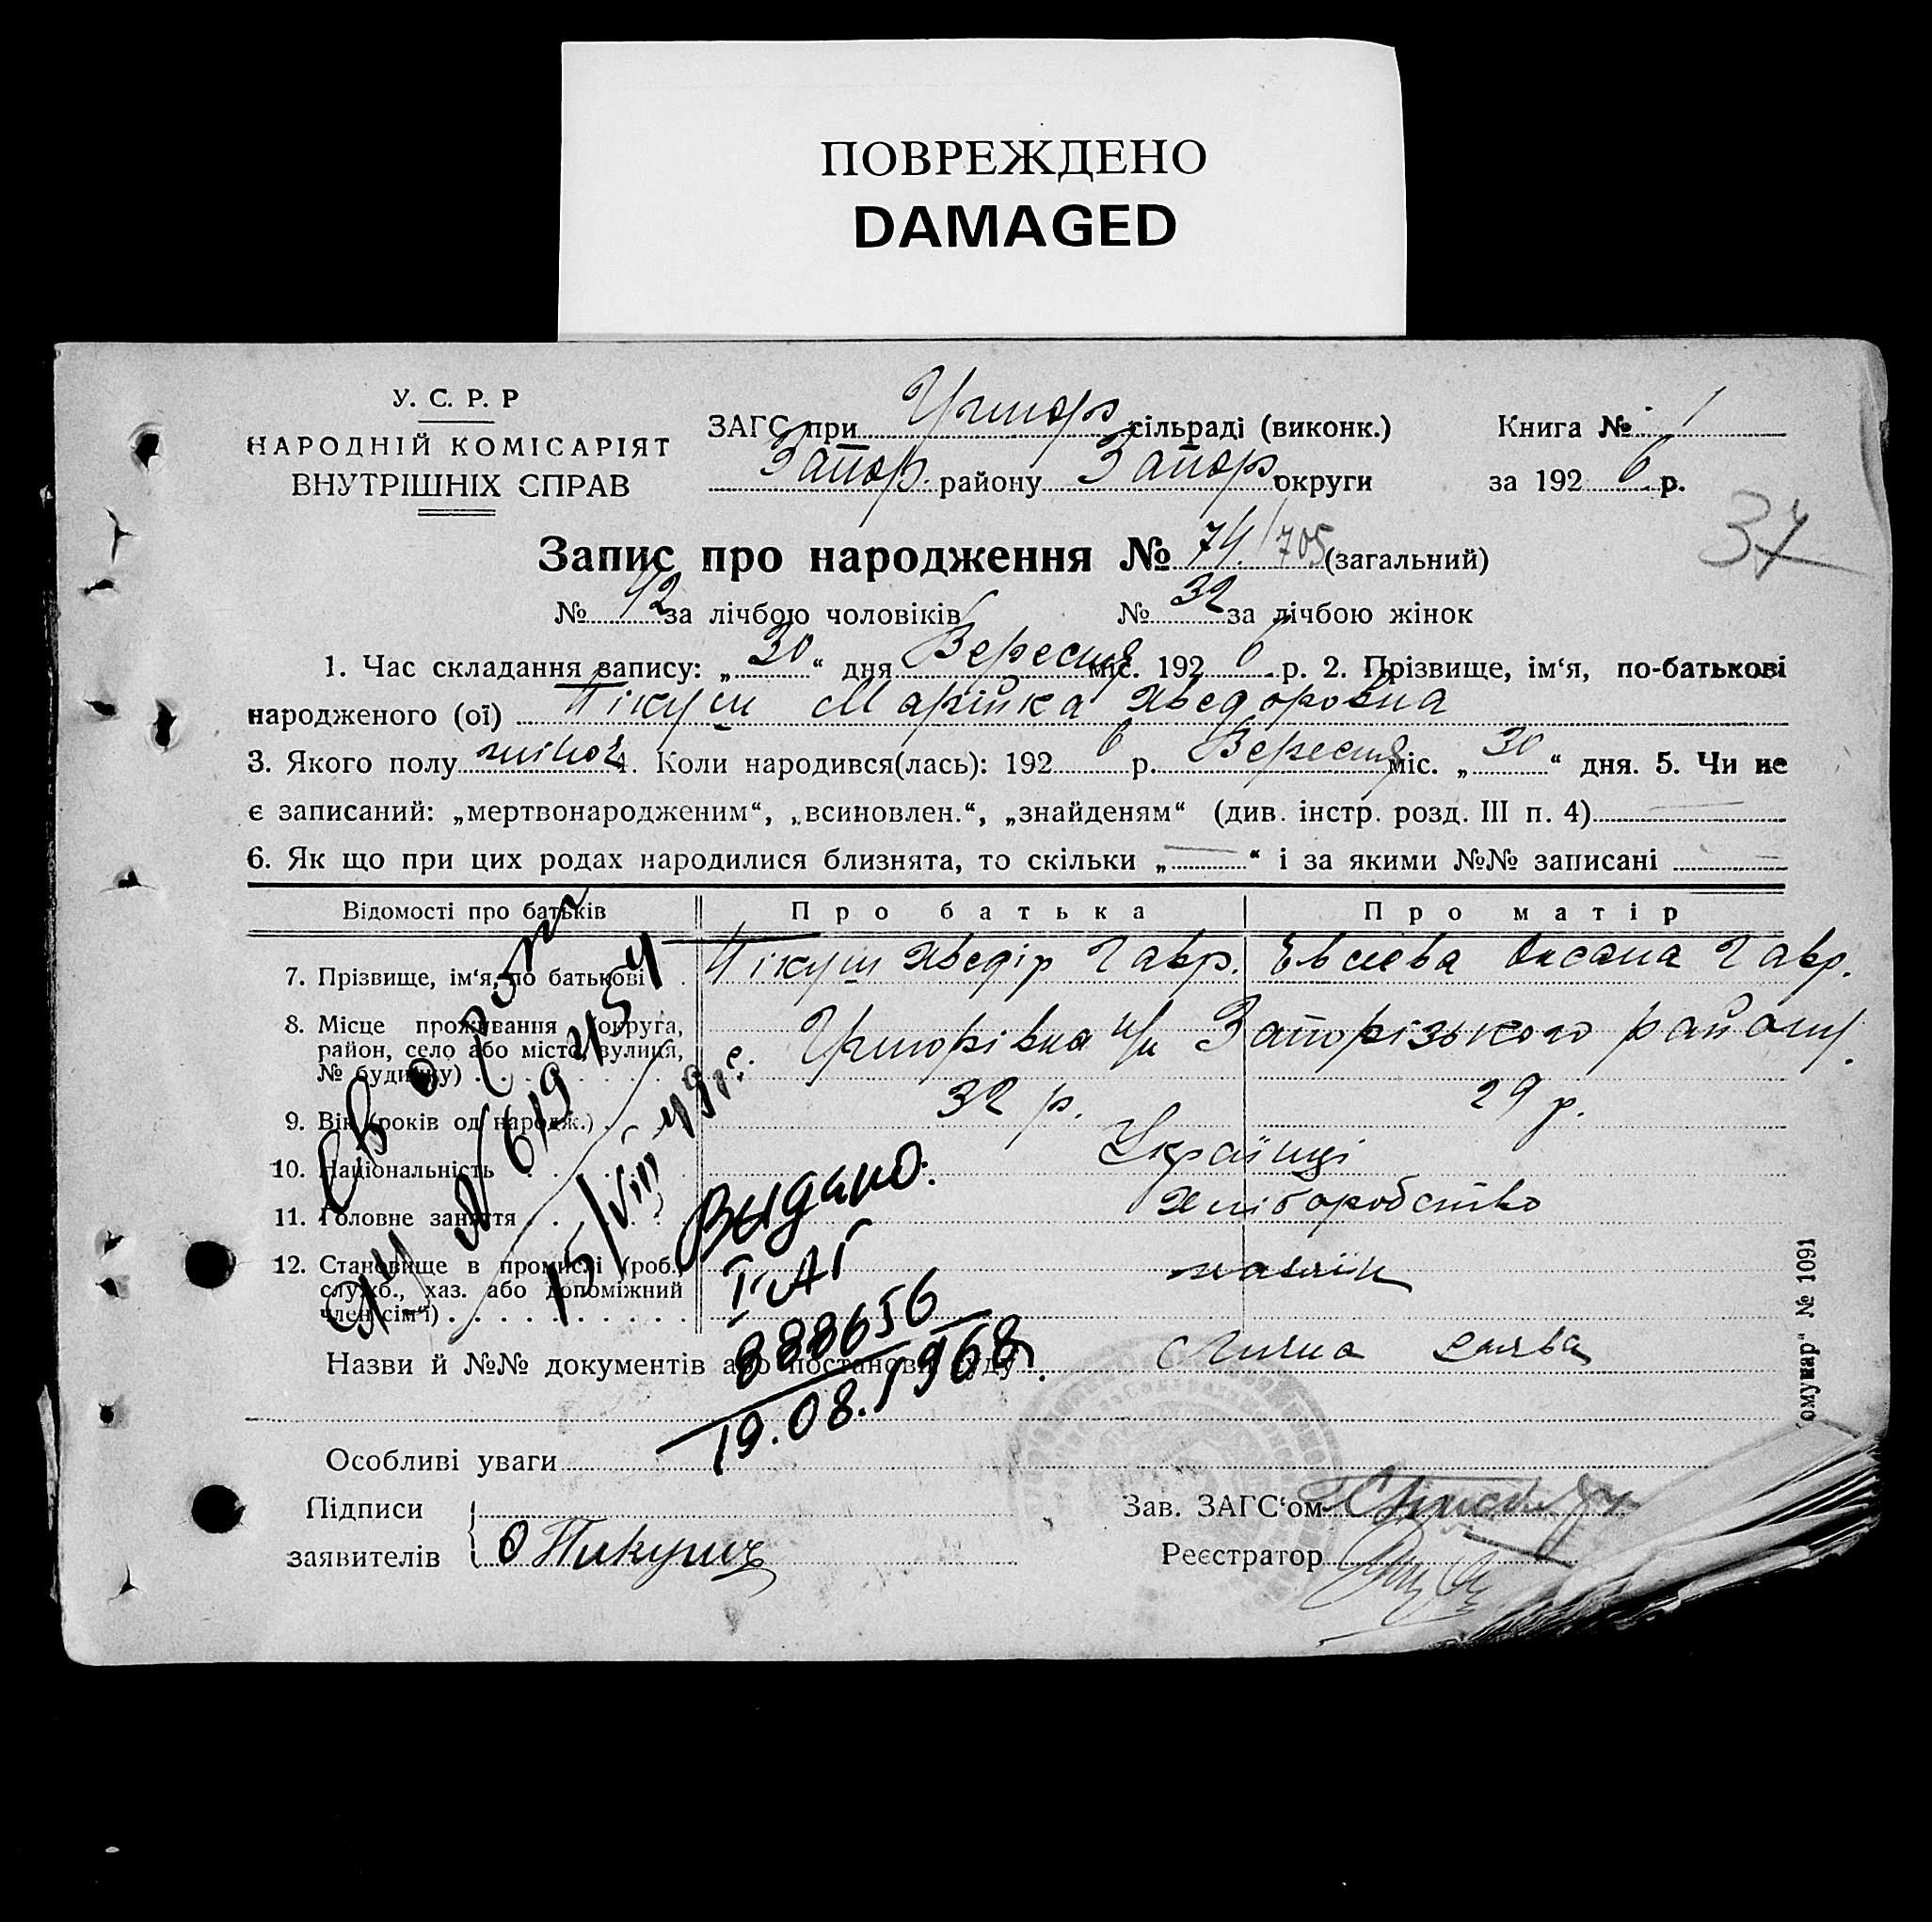 ПОВРЕЖДЕНО
DAMAGED
У. С. Р. Р
НАРОДНІЙ КОМІСАРІЯТ
ВНУТРІШНІХ СПРАВ
ЗАГС при сільраді (виконк.)
Запор. району Запор округи
Книга № 1
за 192 6 р.
37
Запис про народження № 74/705 (загальний)
№ 42 за лічбою чоловіків № 32 за лічбою жінок
1. Час складання запису: „ 30 “ дня Вересня міс. 192 6 р. 2. Прізвище, ім‘я, по-батькові
народженого (ої) Пікуш Марійка Хведоровна
3. Якого полу жіноч 4. Коли народився(лась): 192 6 р. Вересня міс. „ 30 “ дня. 5. Чи не
є записаний: „мертвонародженим“, „всиновлен.“, „знайденям“ (див. інстр. розд. III п. 4)
6. Як що при цих родах народилися близнята, то скільки „ “ і за якими №№ записані
Відомості про батьків Про батька Про матір
7. Прізвище, ім‘я, по батькові Пікуш Хведір Гавр. Евсеєва Оксана Гавр.
8. Місце проживання (округа,
район, село або місто, вулиця,
№ будинку) с. Запорізького району.
9. Вік (років од народж.) 32 р. 29 р.
10. Національність Українці
11. Головне заняття Хліборобство
12. Становище в промислі (роб.,
служб., хаз. або допоміжний
член сім‘ї)
Назви й №№ документів або постанови суду Личная заява
Особливі уваги
Підписи
заявителів О Пикуш
Зав. ЗАГС‘ом
Реєстратор
15/VIII 49 г.
Выдано:
888656
19.08.1968
№ 1091